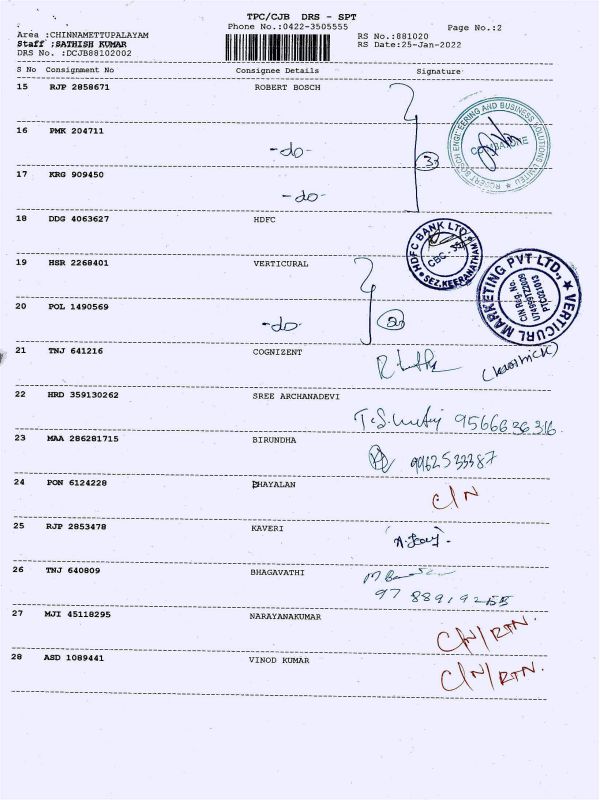 TPC/CJB DRS - SPT
Phone No.:0422-3505555
Page No.:2
Area :CHINNAMETTUPALAYAM
RS No.:881020
Staff :SATHISH KUMAR
RS Date:25-Jan-2022
DRS No. :DCJB88102002
S No Consignment No Consignee Details Signature
15 RJP 2858671 ROBERT BOSCH
ROBERT BOSCH ENGINEERING AND BUSINESS SOLUTIONS LIMITED
COIMBATORE
16 PMK 204711 -do-
3
17 KRG 909450 -do-
18 DDG 4063627 HDFC
HDFC BANK LTD.
CBC - 35
SEZ, KEERANATHAM
19 HSR 2268401 VERTICURAL
VERTICURL MARKETING PVT LTD.,
CIN Reg. No.
PTC021013
20 POL 1490569 -do-
2
21 TNJ 641216 COGNIZENT
22 HRD 359130262 SREE ARCHANADEVI
9566636316
23 MAA 286281715 BIRUNDHA
9962533387
24 PON 6124228 DHAYALAN
C/N
25 RJP 2853478 KAVERI
26 TNJ 640809 BHAGAVATHI
27 MJI 45118295 NARAYANAKUMAR
C/N/RTN.
28 ASD 1089441 VINOD KUMAR
C/N/RTN.